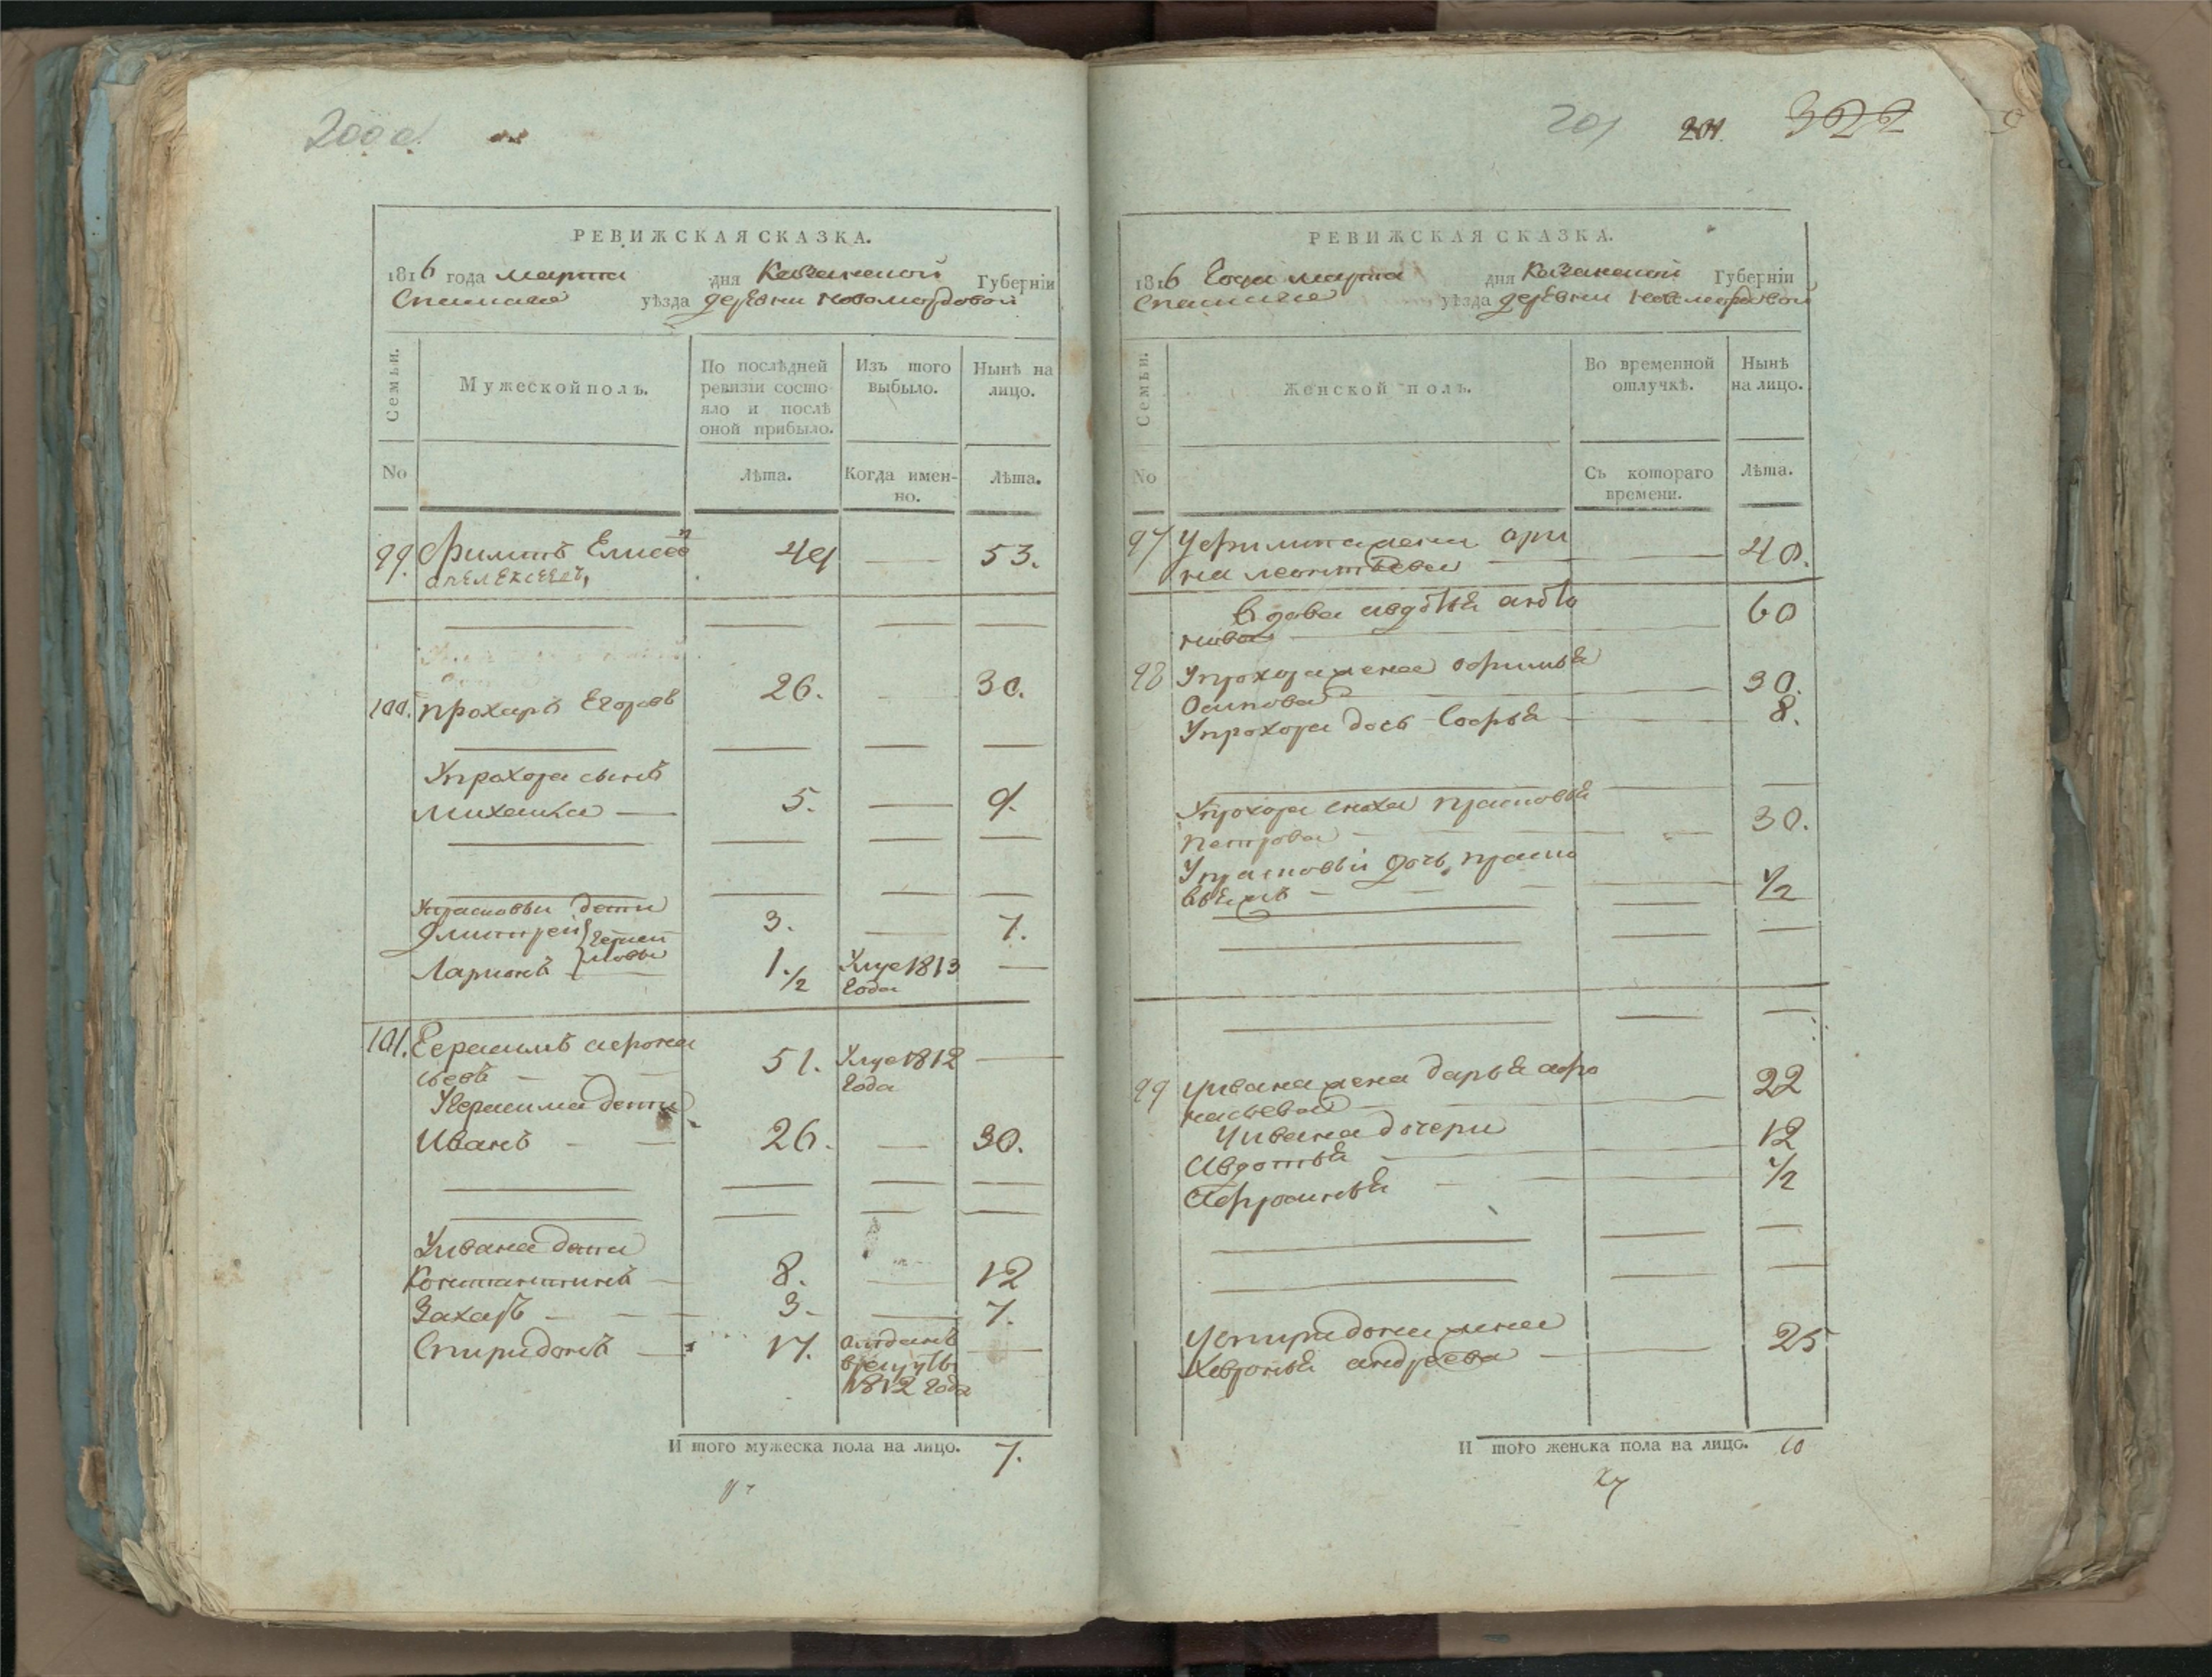 200 об.
РЕВИЖСКАЯ СКАЗКА.
1816 года марта дня Казанской Губерніи
Спаскаго уѣзда деревни Новомордовой
Семьи.
Мужеской полъ.
По послѣдней ревизіи состояло и послѣ оной прибыло.
Изъ того выбыло.
Нынѣ на лицо.
No
Лѣта.
Когда именно.
Лѣта.
99. Филипъ Елисеевъ 49 53.
100. Прохаръ Егоровъ 26. 30.
Упрохора сынъ
Михайла 5. 9.
Упрасковьи дети
Дмитрей 3. 7.
Ларионъ 1 1/2 Умре 1813
года
101. Герасимъ афона
сьевъ 51. Умре 1812
года
Угерасима дети
Иванъ 26. 30.
Уивана дети
Константинъ 8. 12
Захаръ 3. 7.
Спиридонъ 17. отданъ
врекруты
1812 года
И того мужеска пола на лицо. 7.
201 201. 322
РЕВИЖСКАЯ СКАЗКА.
1816 Года марта дня Казанской Губерніи
Спаскаго уѣзда деревни Новомордовой
Семьи.
Женской полъ.
Во временной отлучкѣ.
Нынѣ на лицо.
No
Съ котораго времени.
Лѣта.
97 Уфилипа жена ари
на леонтьева 40.
Вдова авдотья анто
нова 60
98 Упрохора жена
Осипова 30.
Упрохора дочь Софья 8.
Упрохора сноха прасковья
Петрова 30.
Упрасковьи дочь праско
вья 1/2
99 Уивана жена дарья афо
насьева 22
Уивана дочери
Авдотья 12
Афросинья 1/2
Успиридона жена
Хевронья андреева 25
И того женска пола на лицо. 10